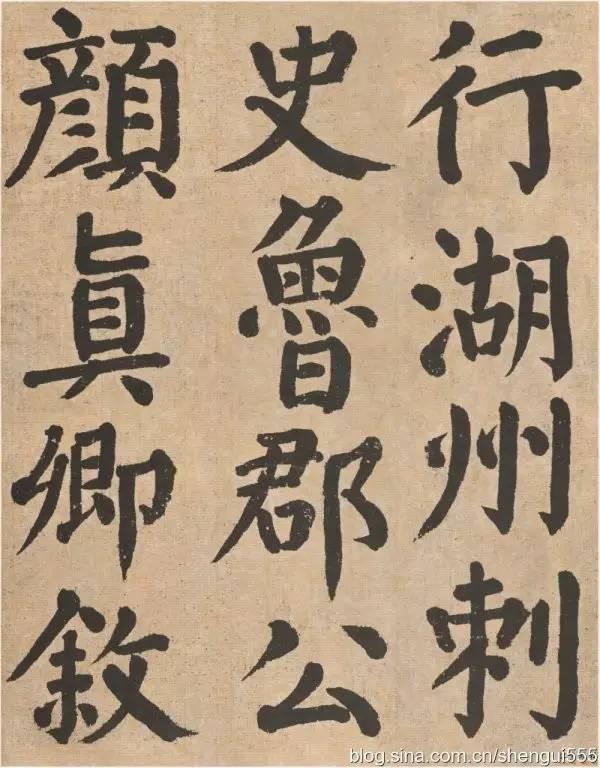 行湖州刺
史魯郡公
顏真卿敘
blog.sina.com.cn/shengui555